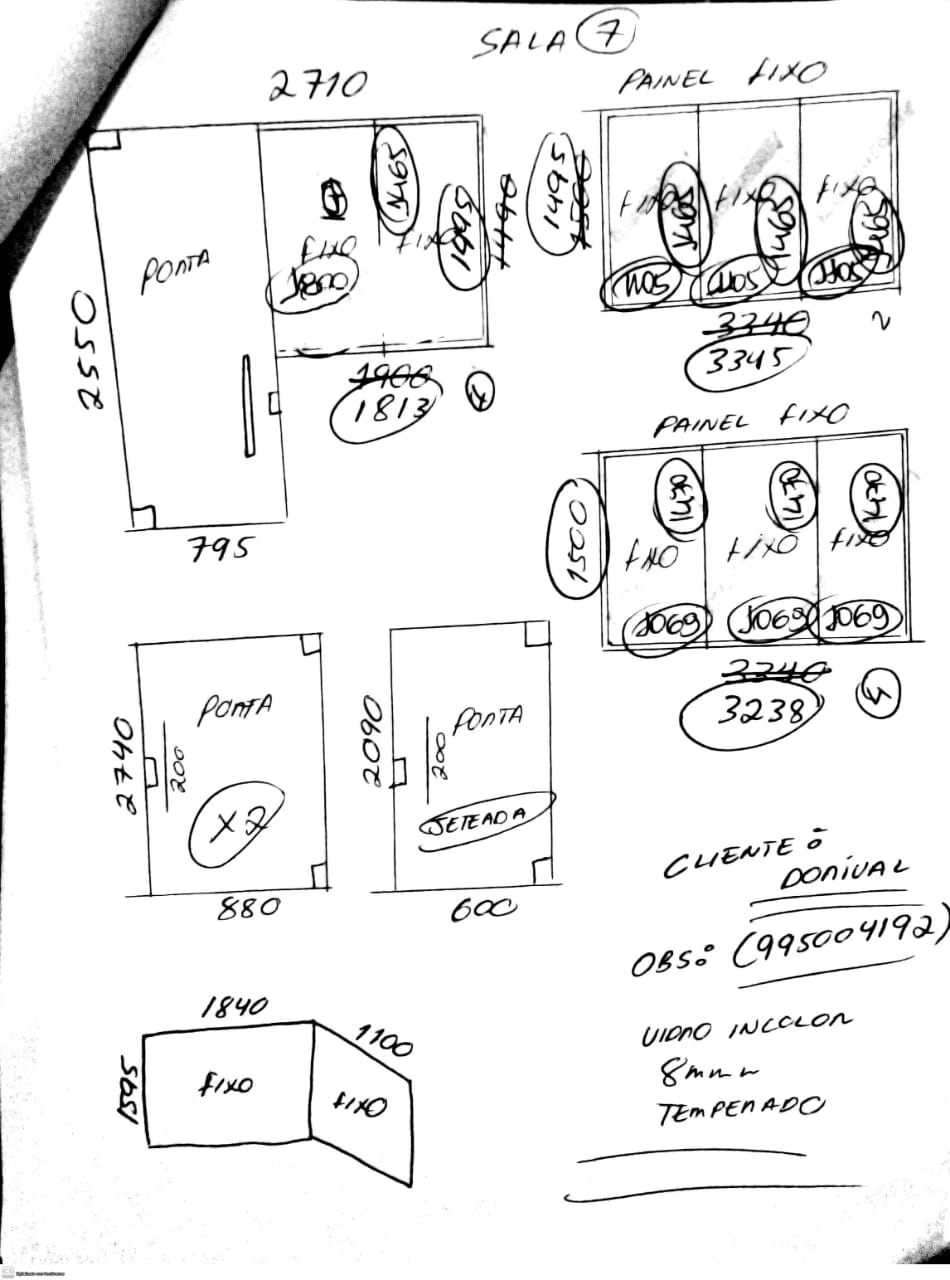 SALA 7
2710
PAINEL FIXO
2550
PORTA
FIXO
1800
1465
FIXO
1995
1490
1495
1500
FIXO
1465
1105
FIXO
1465
1105
FIXO
1465
1105
3340
3345
2
1900
1813
795
PAINEL FIXO
1500
1470
FIXO
1069
1470
FIXO
1069
1470
FIXO
1069
3240
3238
3
2740
PORTA
200
X2
880
2090
PORTA
200
JETEADA
600
CLIENTE:
DORIVAL
OBS: (995004192)
VIDRO INCOLOR
8mm
TEMPERADO
1840
1100
1595
FIXO
FIXO